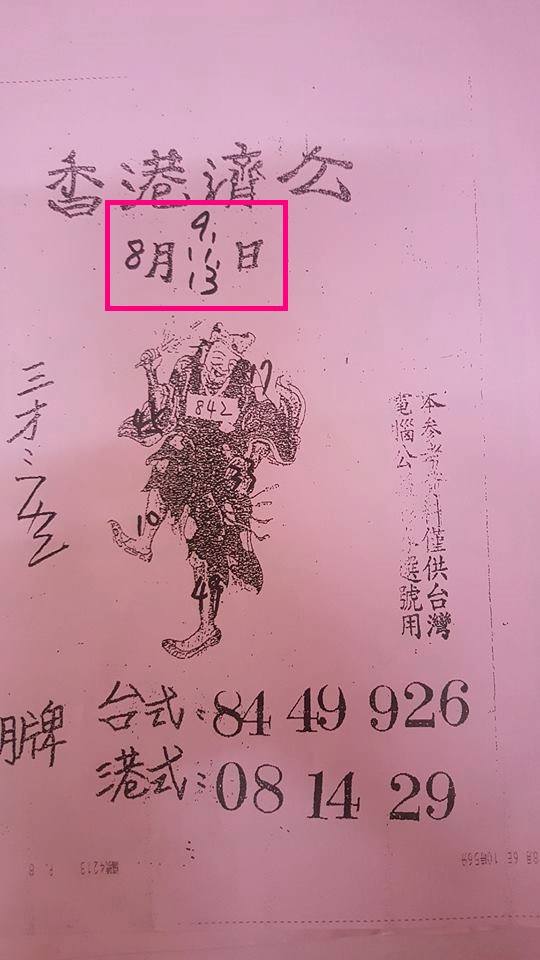 香港濟公
8月 9.11.13 日
17
842
33
10
49
三才:
本參考資料僅供台灣
電腦公益彩券選號用
台式:84 49 926
港式:08 14 29
牌